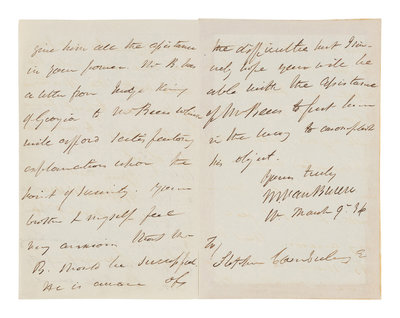 give him all the assistance
in your power. Mr B. has
a letter from Judge King
of Georgia to Mr Beers which
will afford satisfactory
explanations upon the
point of security. Your
brother & myself feel
very anxious that Mr
B. should be successful
He is aware of
the difficulties but I sin-
cerely hope you will be
able with the assistance
of Mr Beers to put him
in the way to accomplish
his object.
Yours truly
M Van Buren
W March 9th 36
To
Stephen